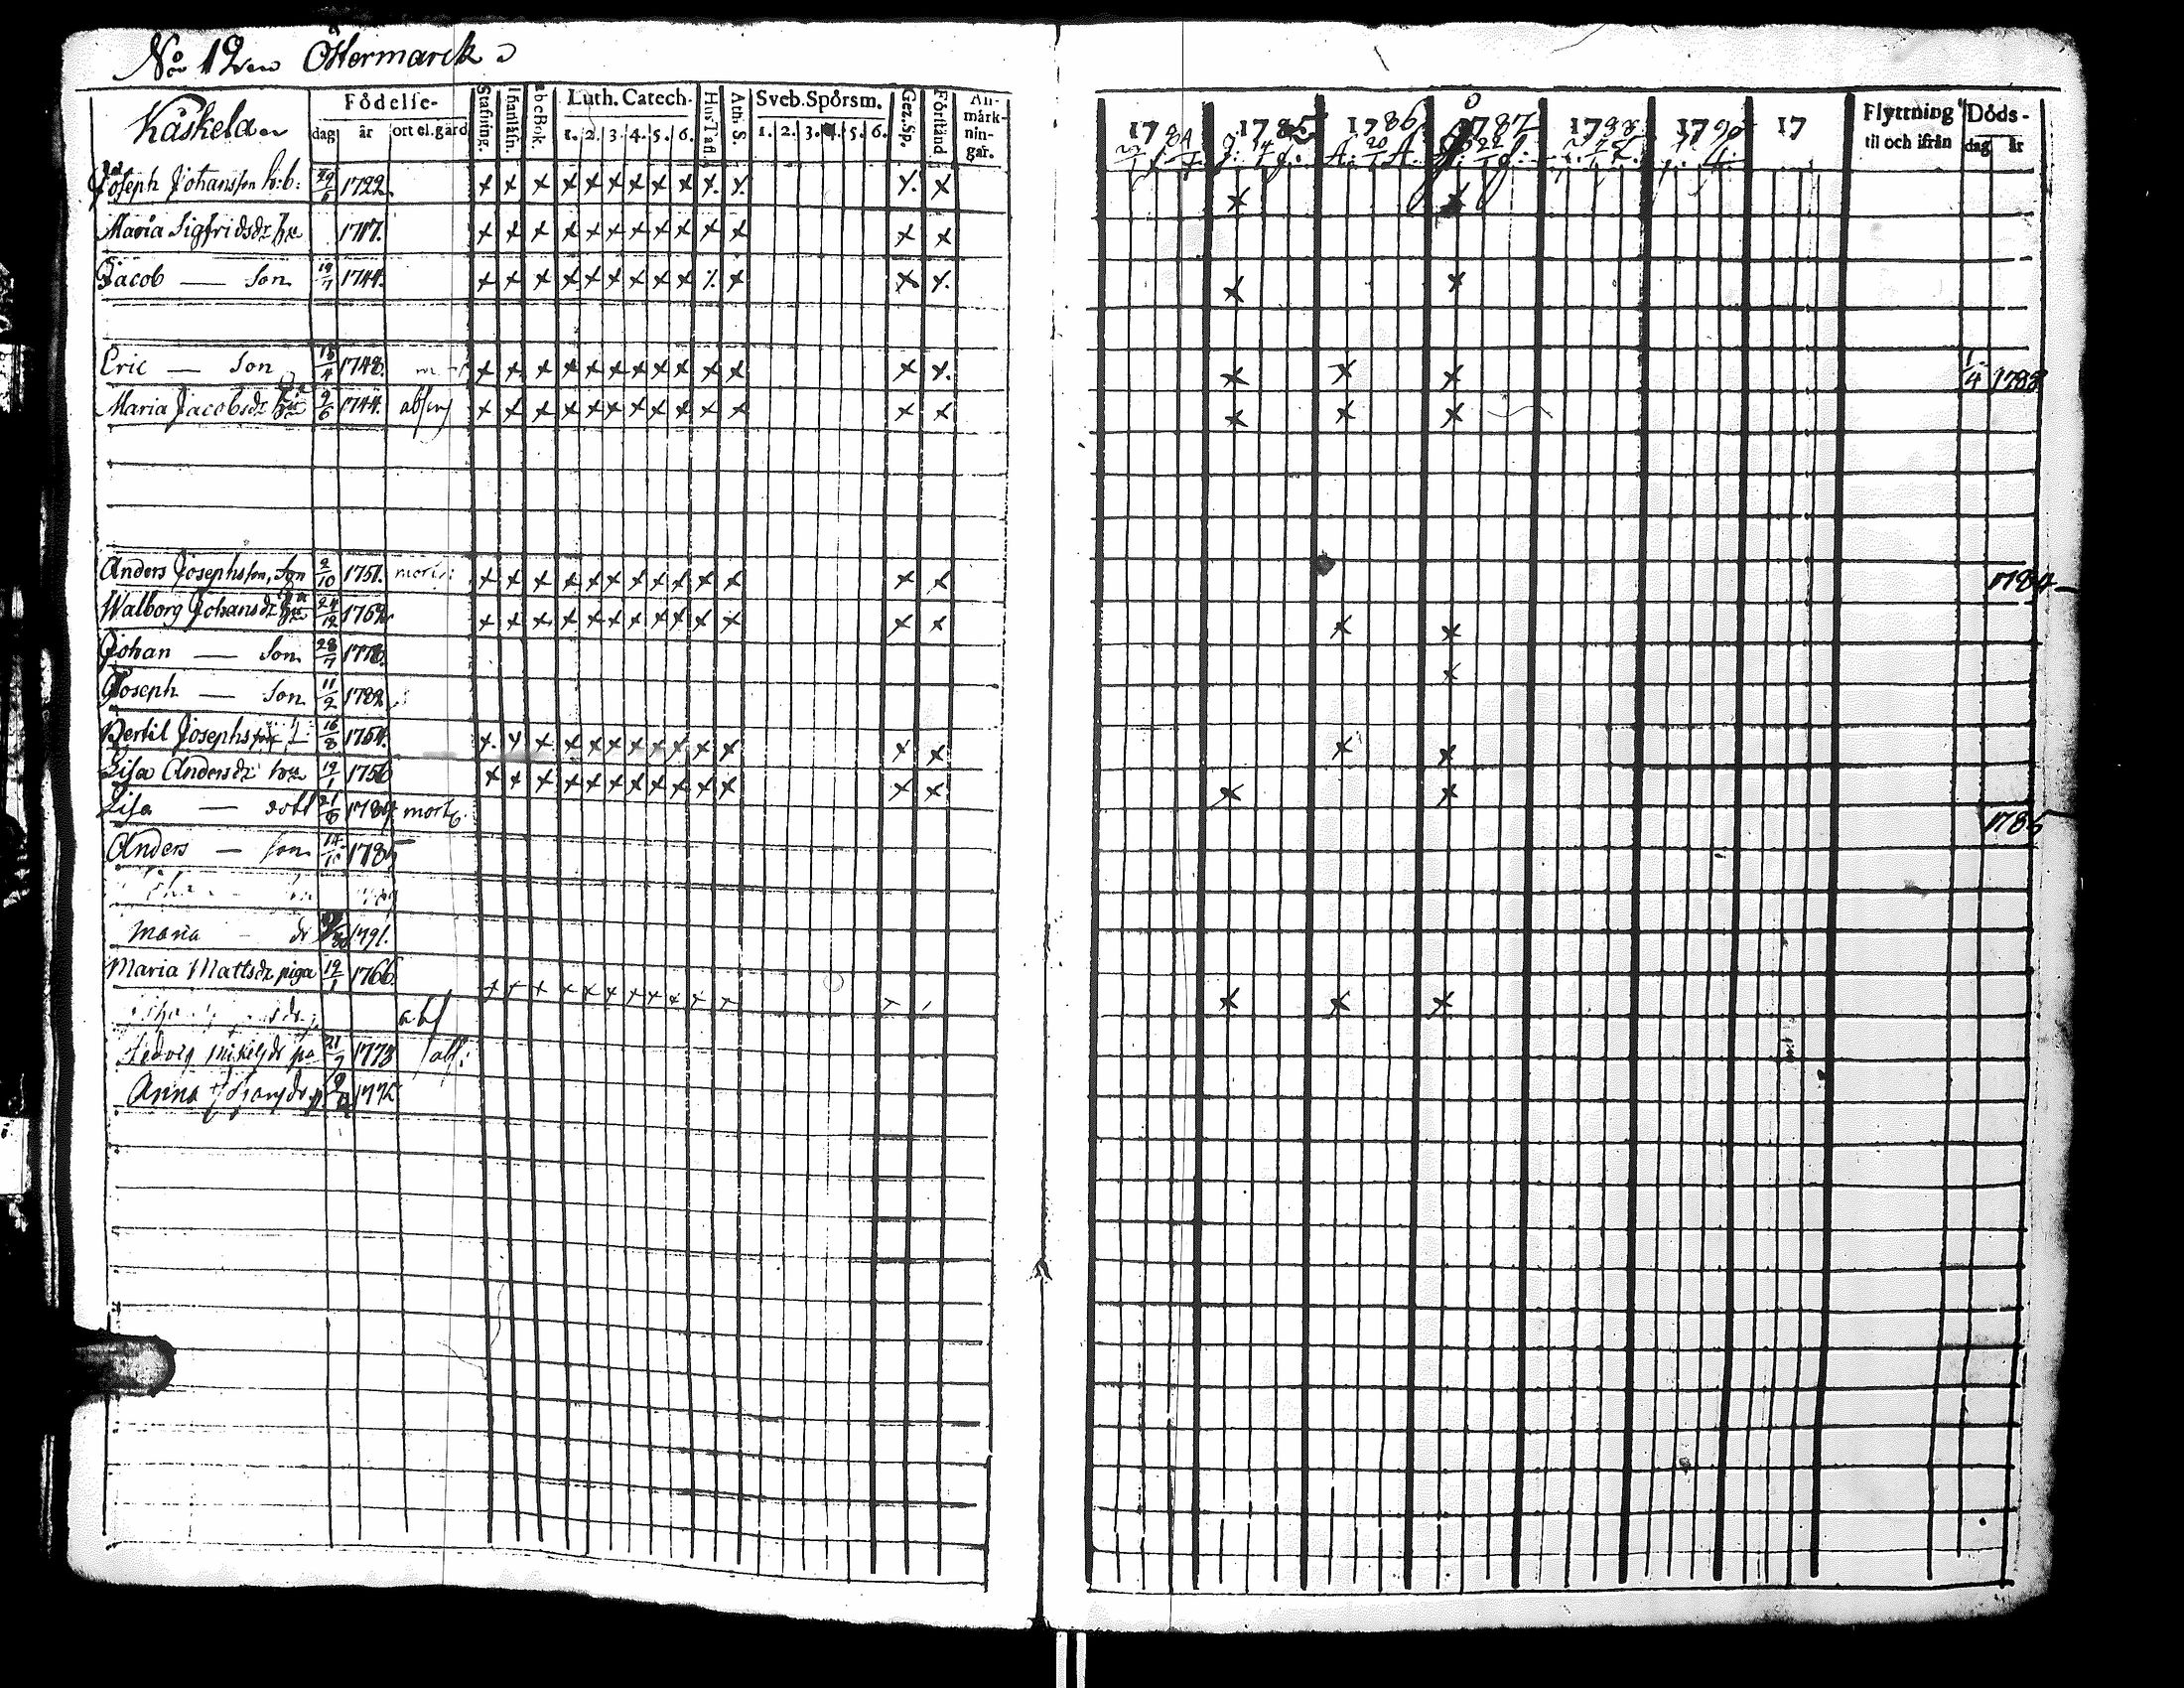 No 12 Östermarck
Käskela
Födelse-
dag år ort el. gård
Stafning. Inanläsn. abcBok. Luth. Catech. 1. 2. 3. 4. 5. 6. Hus Tafl. Ath. S. Sveb. Spörsm. 1. 2. 3. 4. 5. 6. Gez. Sp. Förstånd An-märk-nin-gar.
1784 1785 1786 1787 17 1790 17 Flyttning til och ifrån Döds- dag år
Joseph Johansson h:b: 1722. x x x x x x x x x x x x x x x
Maria Sigfridsdr hu 1717. x x x x x x x x x x x x x
Jacob — Son 19/7 1744. x x x x x x x x x x x x x x x
Eric — Son 18/4 1748. x x x x x x x x x x x x x x x x 1/4 1788
Maria Jacobsdr 9/6 1744. absens x x x x x x x x x x x x x x x x
Anders Josephsson, Son 2/10 1751. mort: x x x x x x x x x x x x x
Walborg Johansdr 24/12 1752 x x x x x x x x x x x x x x x
Johan — Son 28/7 1778.
Joseph — Son 11/2 1782 x
Bertil Josephs 16/8 1754. x x x x x x x x x x x x x x x
Lisa Andersdr hu 19/1 1756 x x x x x x x x x x x x x x x
Lisa — dott 1784 mort 1785
Anders — son 1785
Maria — dr 1791.
Maria Mattsdr piga 19/1 1766. x x x x x x x x x x x x x x
abs
Hedvig Mikelsdr pa 21/7 1773 abs:
Anna Johansdr p